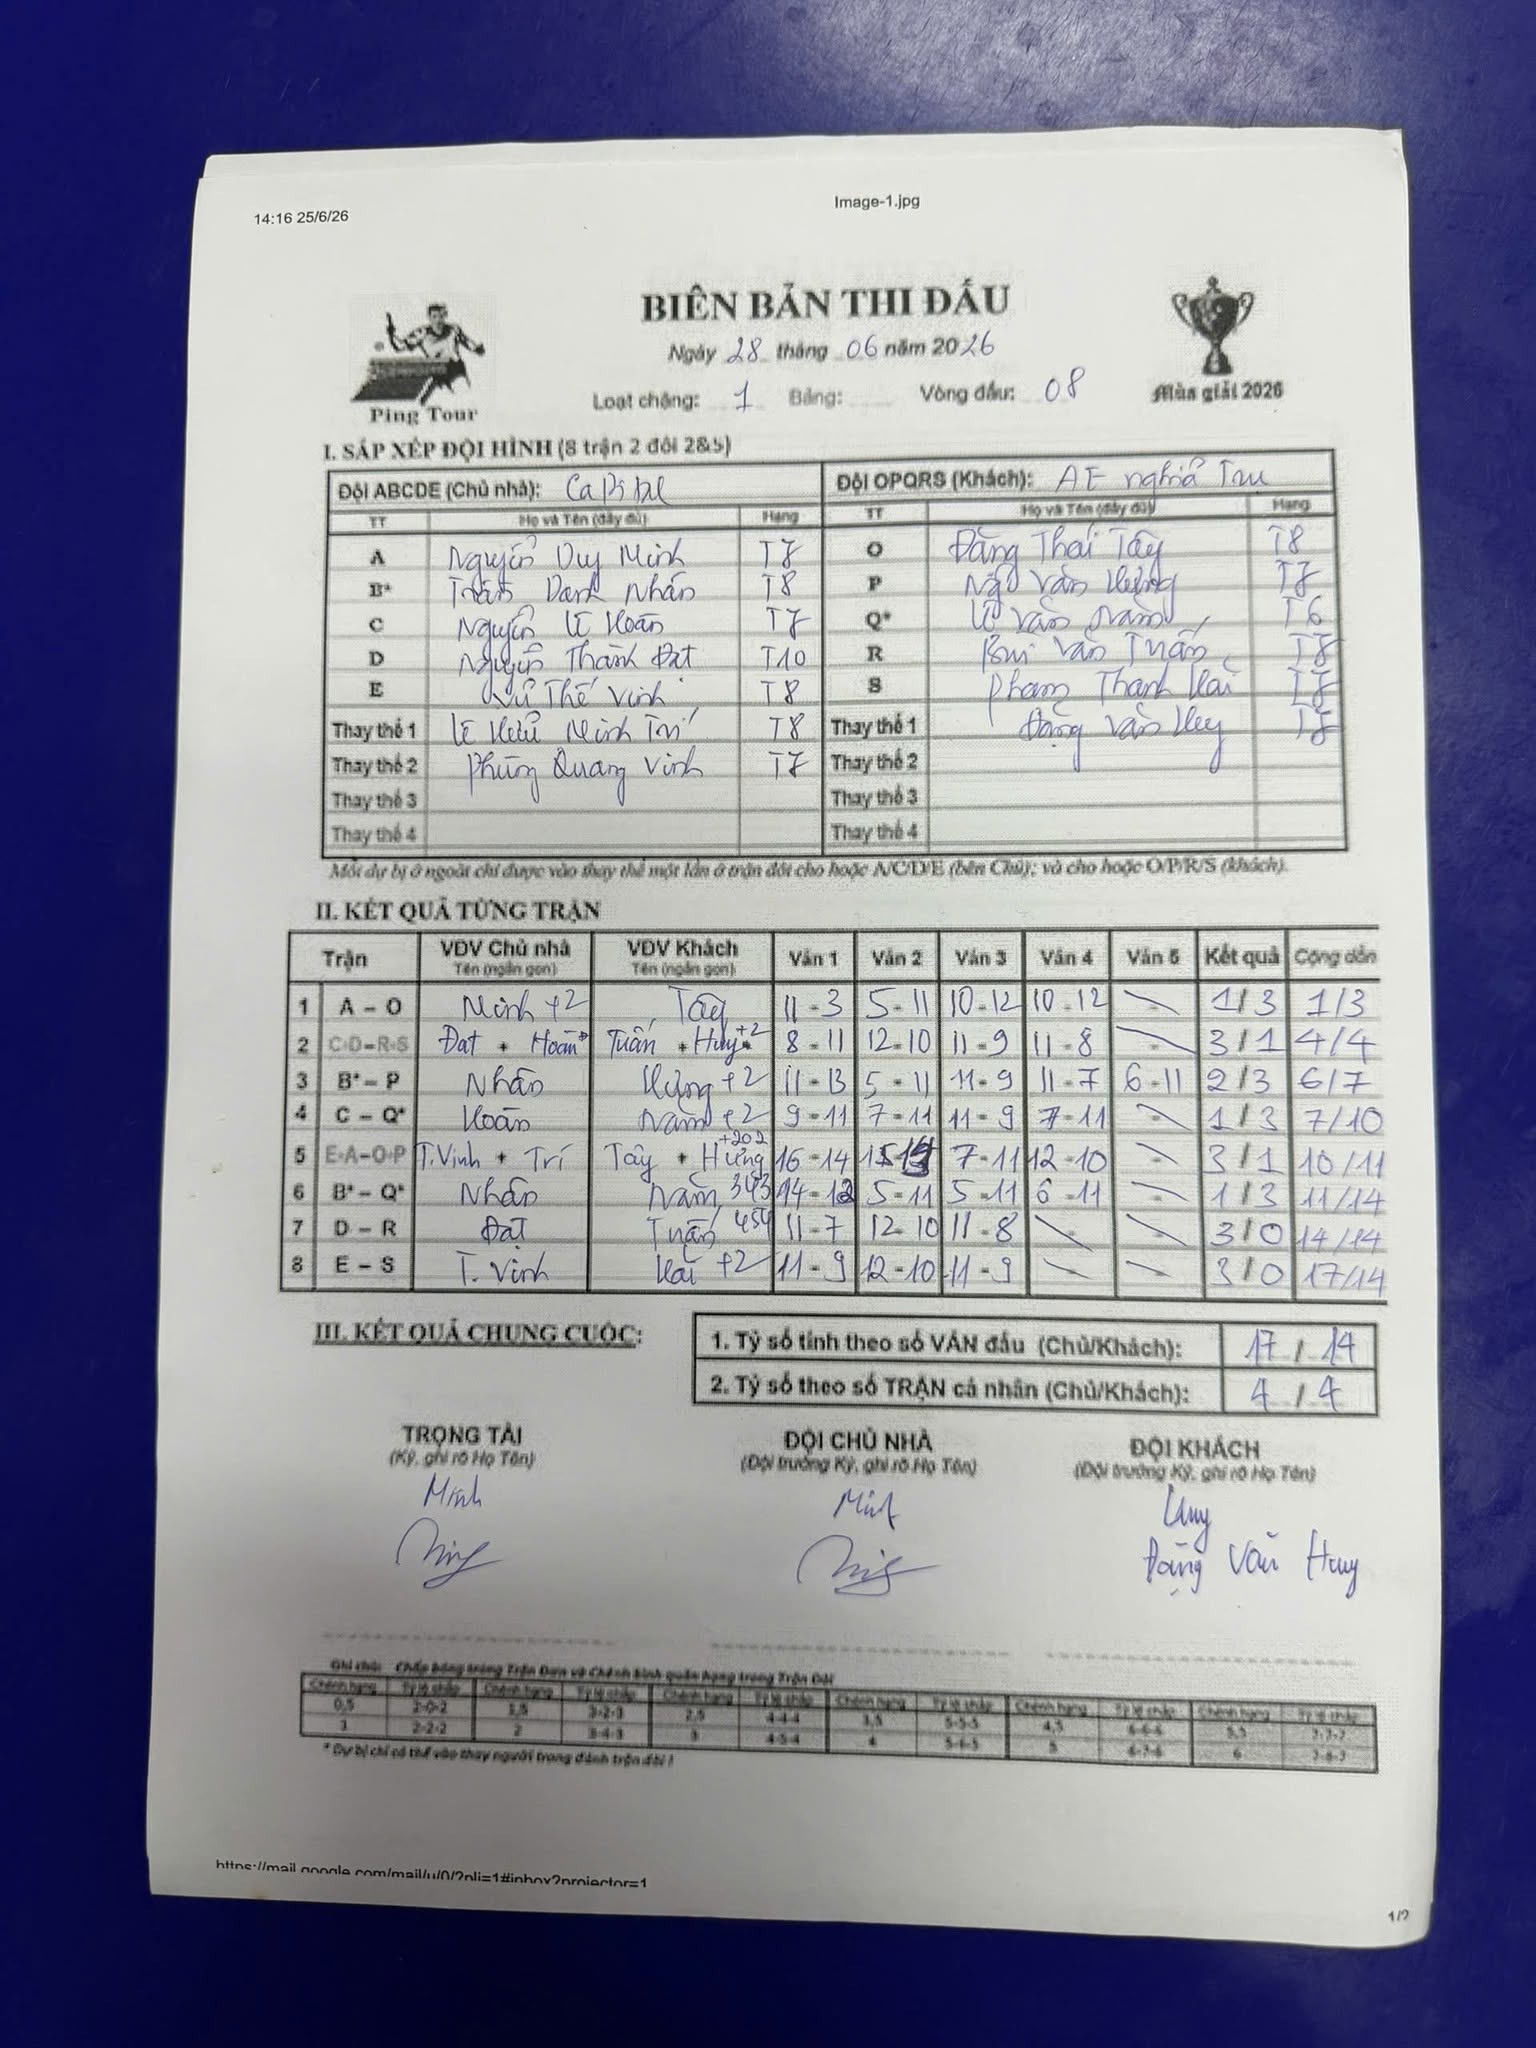 14:16 25/6/26
Image-1.jpg
BIÊN BẢN THI ĐẤU
Ngày 28 tháng 06 năm 2026
Loạt chặng: 1 Bảng: Vòng đấu: 08
Ping Tour
Mùa giải 2026
I. SẮP XẾP ĐỘI HÌNH (8 trận 2 đôi 2&5)
Đội ABCDE (Chủ nhà): Đội OPQRS (Khách): AE nghĩa
TT Họ và Tên (đầy đủ) Hạng TT Họ và Tên (đầy đủ) Hạng
A Nguyễn Duy Minh T7 O Đặng Thái Tây T8
B* Trần Danh Nhân T8 P Ngô Văn Hưng T7
C Nguyễn Lê Hoàn T7 Q* Lê Văn Năm T6
D Nguyễn Thành Đạt T10 R Bùi Văn Tuấn T8
E Vũ Thế Vinh T8 S Phạm Thanh Hải T7
Thay thế 1 Lê Hữu Minh Trí T8 Thay thế 1 Đặng Văn Huy T7
Thay thế 2 Phùng Quang Vinh T7 Thay thế 2
Thay thế 3 Thay thế 3
Thay thế 4 Thay thế 4
Mỗi dự bị ở ngoài chỉ được vào thay thế một lần ở trận đôi cho hoặc A/C/D/E (bên Chủ); và cho hoặc O/P/R/S (khách).
II. KẾT QUẢ TỪNG TRẬN
Trận VĐV Chủ nhà VĐV Khách Ván 1 Ván 2 Ván 3 Ván 4 Ván 5 Kết quả Cộng dồn
Tên (ngắn gọn) Tên (ngắn gọn)
1 A – O Minh +2 Tây 11-3 5-11 10-12 10-12 1/3 1/3
2 C+D–R+S Đạt + Hoàn Tuấn + Huy +2 8-11 12-10 11-9 11-8 3/1 4/4
3 B* – P Nhân Hưng +2 11-13 5-11 11-9 11-7 6-11 2/3 6/7
4 C – Q* Hoàn Năm +2 9-11 7-11 11-9 7-11 1/3 7/10
5 E+A–O+P T.Vinh + Trí Tây + Hưng +202 16-14 7-11 12-10 3/1 10/11
6 B* – Q* Nhân Năm 343 14-12 5-11 5-11 6-11 1/3 11/14
7 D – R Đạt Tuấn 454 11-7 12-10 11-8 3/0 14/14
8 E – S T. Vinh Hải +2 11-9 12-10 11-9 3/0 17/14
III. KẾT QUẢ CHUNG CUỘC:
1. Tỷ số tính theo số VÁN đấu (Chủ/Khách): 17 / 14
2. Tỷ số theo số TRẬN cá nhân (Chủ/Khách): 4 / 4
TRỌNG TÀI ĐỘI CHỦ NHÀ ĐỘI KHÁCH
(Ký, ghi rõ Họ Tên) (Đội trưởng Ký, ghi rõ Họ Tên) (Đội trưởng Ký, ghi rõ Họ Tên)
Minh Minh Huy
Đặng Văn Huy
Ghi chú: Chấp bóng trong Trận Đơn và Chênh bình quân hạng trong Trận Đôi
Chênh hạng Tỷ lệ chấp Chênh hạng Tỷ lệ chấp Chênh hạng Tỷ lệ chấp Chênh hạng Tỷ lệ chấp Chênh hạng Tỷ lệ chấp Chênh hạng Tỷ lệ chấp
0,5 2-0-2 1,5 3-2-3 2,5 4-4-4 3,5 5-5-5 4,5 6-6-6 5,5 7-7-7
1 2-2-2 2 3-4-3 3 4-5-4 4 5-6-5 5 6-7-6 6 7-8-7
* Dự bị chỉ có thể vào thay người trong đánh trận đôi !
https://mail.google.com/mail/u/0/?pli=1#inbox?projector=1
1/2